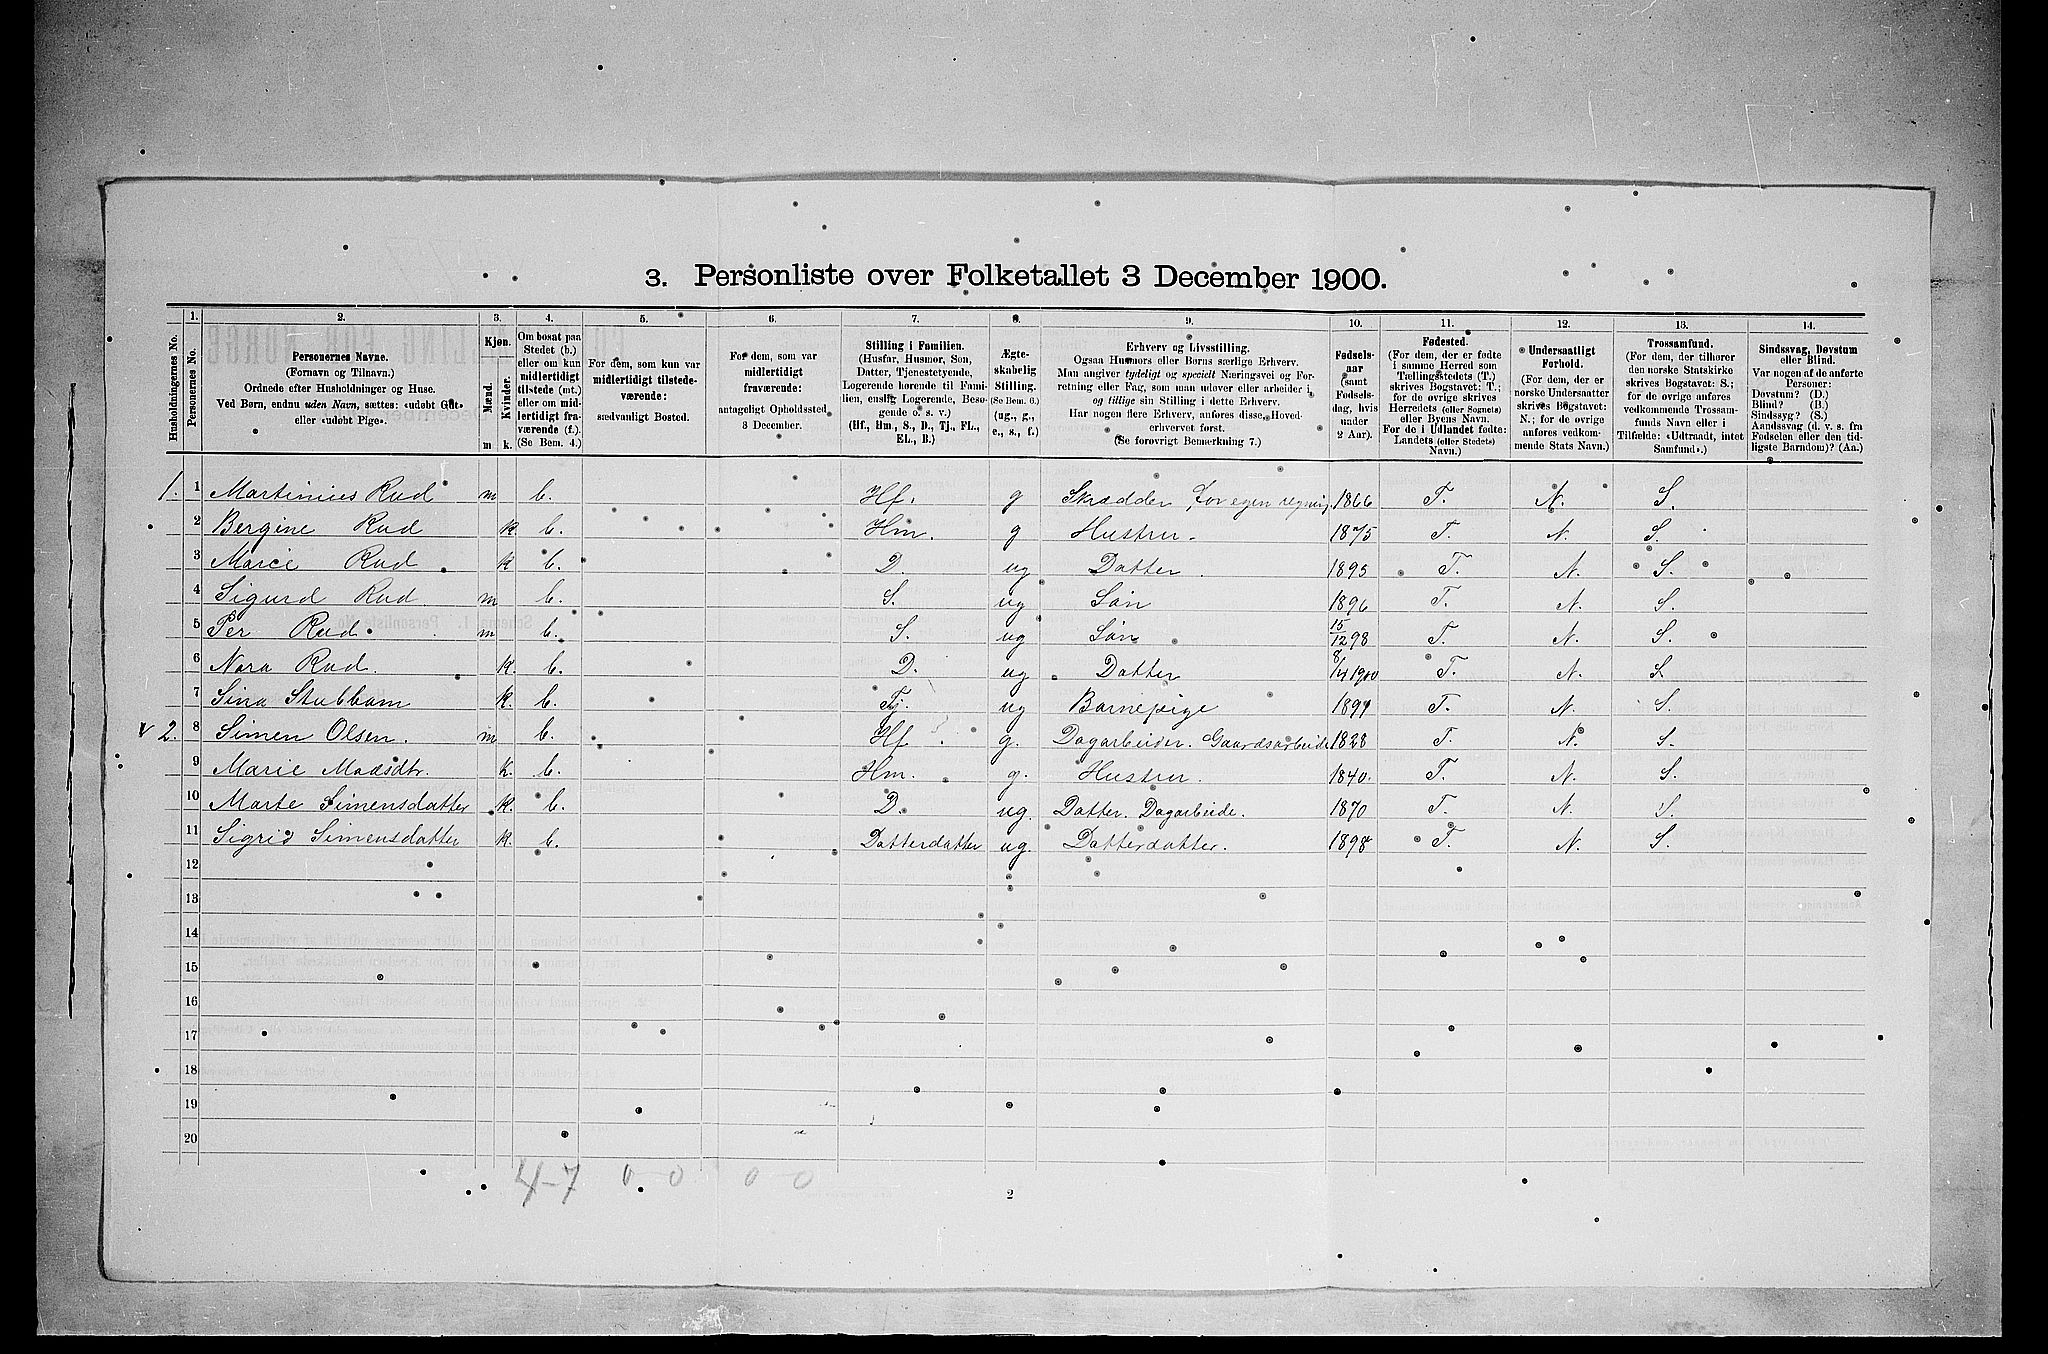 3. Personliste over Folketallet 3 December 1900.
Husholdningernes No.
1.
Personernes No.
2.
Personernes Navne.
(Fornavn og Tilnavn.)
Ordnede efter Husholdninger og Huse.
Ved Børn, endnu uden Navn, sættes: «udøbt Gut»
eller «udøbt Pige».
3.
Kjøn.
Mænd.
Kvinder.
m k.
4.
Om bosat paa
Stedet (b.)
eller om kun
midlertidigt
tilstede (mt.)
eller om mid-
lertidigt fra-
værende (f.).
(Se Bem. 4.)
5.
For dem, som kun var
midlertidigt tilstede-
værende:
sædvanligt Bosted.
6.
For dem, som var
midlertidigt
fraværende:
antageligt Opholdssted
3 December.
7.
Stilling i Familien.
(Husfar, Husmor, Søn,
Datter, Tjenestetyende,
Logerende hørende til Fami-
lien, enslig Logerende, Besø-
gende o. s. v.)
(Hf., Hm., S., D., Tj., FL.,
EL., B.)
8.
Ægte-
skabelig
Stilling.
(Se Bem. 6.)
(ug., g.,
e., s., f.)
9.
Erhverv og Livsstilling.
Ogsaa Husmors eller Børns særlige Erhverv.
Man angiver tydeligt og specielt Næringsvei og For-
retning eller Fag, som man udøver eller arbeider i,
og tillige sin Stilling i dette Erhverv.
Har nogen flere Erhverv, anføres disse, Hoved-
erhvervet først.
(Se forøvrigt Bemerkning 7.)
10.
Fødsels-
aar
(samt
Fødsels-
dag, hvis
under
2 Aar).
11.
Fødested.
(For dem, der er fødte
i samme Herred som
Tællingsstedets (T.)
skrives Bogstavet: T.;
for de øvrige skrives
Herredets (eller Sognets)
eller Byens Navn.
For de i Udlandet fødte:
Landets (eller Stedets)
Navn.)
12.
Undersaatligt
Forhold.
(For dem, der er
norske Undersaatter
skrives Bogstavet:
N.; for de øvrige
anføres vedkom-
mende Stats Navn.)
13.
Trossamfund.
(For dem, der tilhører
den norske Statskirke
skrives Bogstavet: S.;
for de øvrige anføres
vedkommende Trossam-
funds Navn eller i
Tilfælde: «Udtraadt, intet
Samfund».)
14.
Sindssvag, Døvstum
eller Blind.
Var nogen af de anførte
Personer:
Døvstum? (D.)
Blind? (B.)
Sindssyg? (S.)
Aandssvag (d. v. s. fra
Fødselen eller den tid-
ligste Barndom)? (Aa.)
1. 1 Martinius Rud m b. Hf. g Skrædder for egen regning 1866 T. N. S.
2 Bergine Rud k. b. Hm. g Hustru. 1875 T. N. S.
3 Marie Rud k b. D. ug Datter 1895 T. N. S.
4 Sigurd Rud m b. S. ug Søn 1896 T. N. S.
5 Per Rud m b. S. ug Søn 15/12 98 T. N. S.
6 Nora Rud. k. b. D. ug Datter 8/4 1900 T. N. S.
7 Sina k. b. Tj. ug Barnepige T. N. S.
v 2. 8 Simen Olsen. m b. Hf. g. Dagarbeider. Gaardsarbeide 1828 T. N. S.
9 Marie Madsdtr. k. b. Hm. g. Hustru. 1840. T. N. S.
10 Marte Simensdatter k. b. D. ug. Datter. Dagarbeide. 1870 T. N. S.
11 Sigrid Simensdatter k. b. Datterdatter ug. Datterdatter. 1898 T. N. S.
12
13
14
15
16
17
18
19
20
4-7 0-0 0-0
2